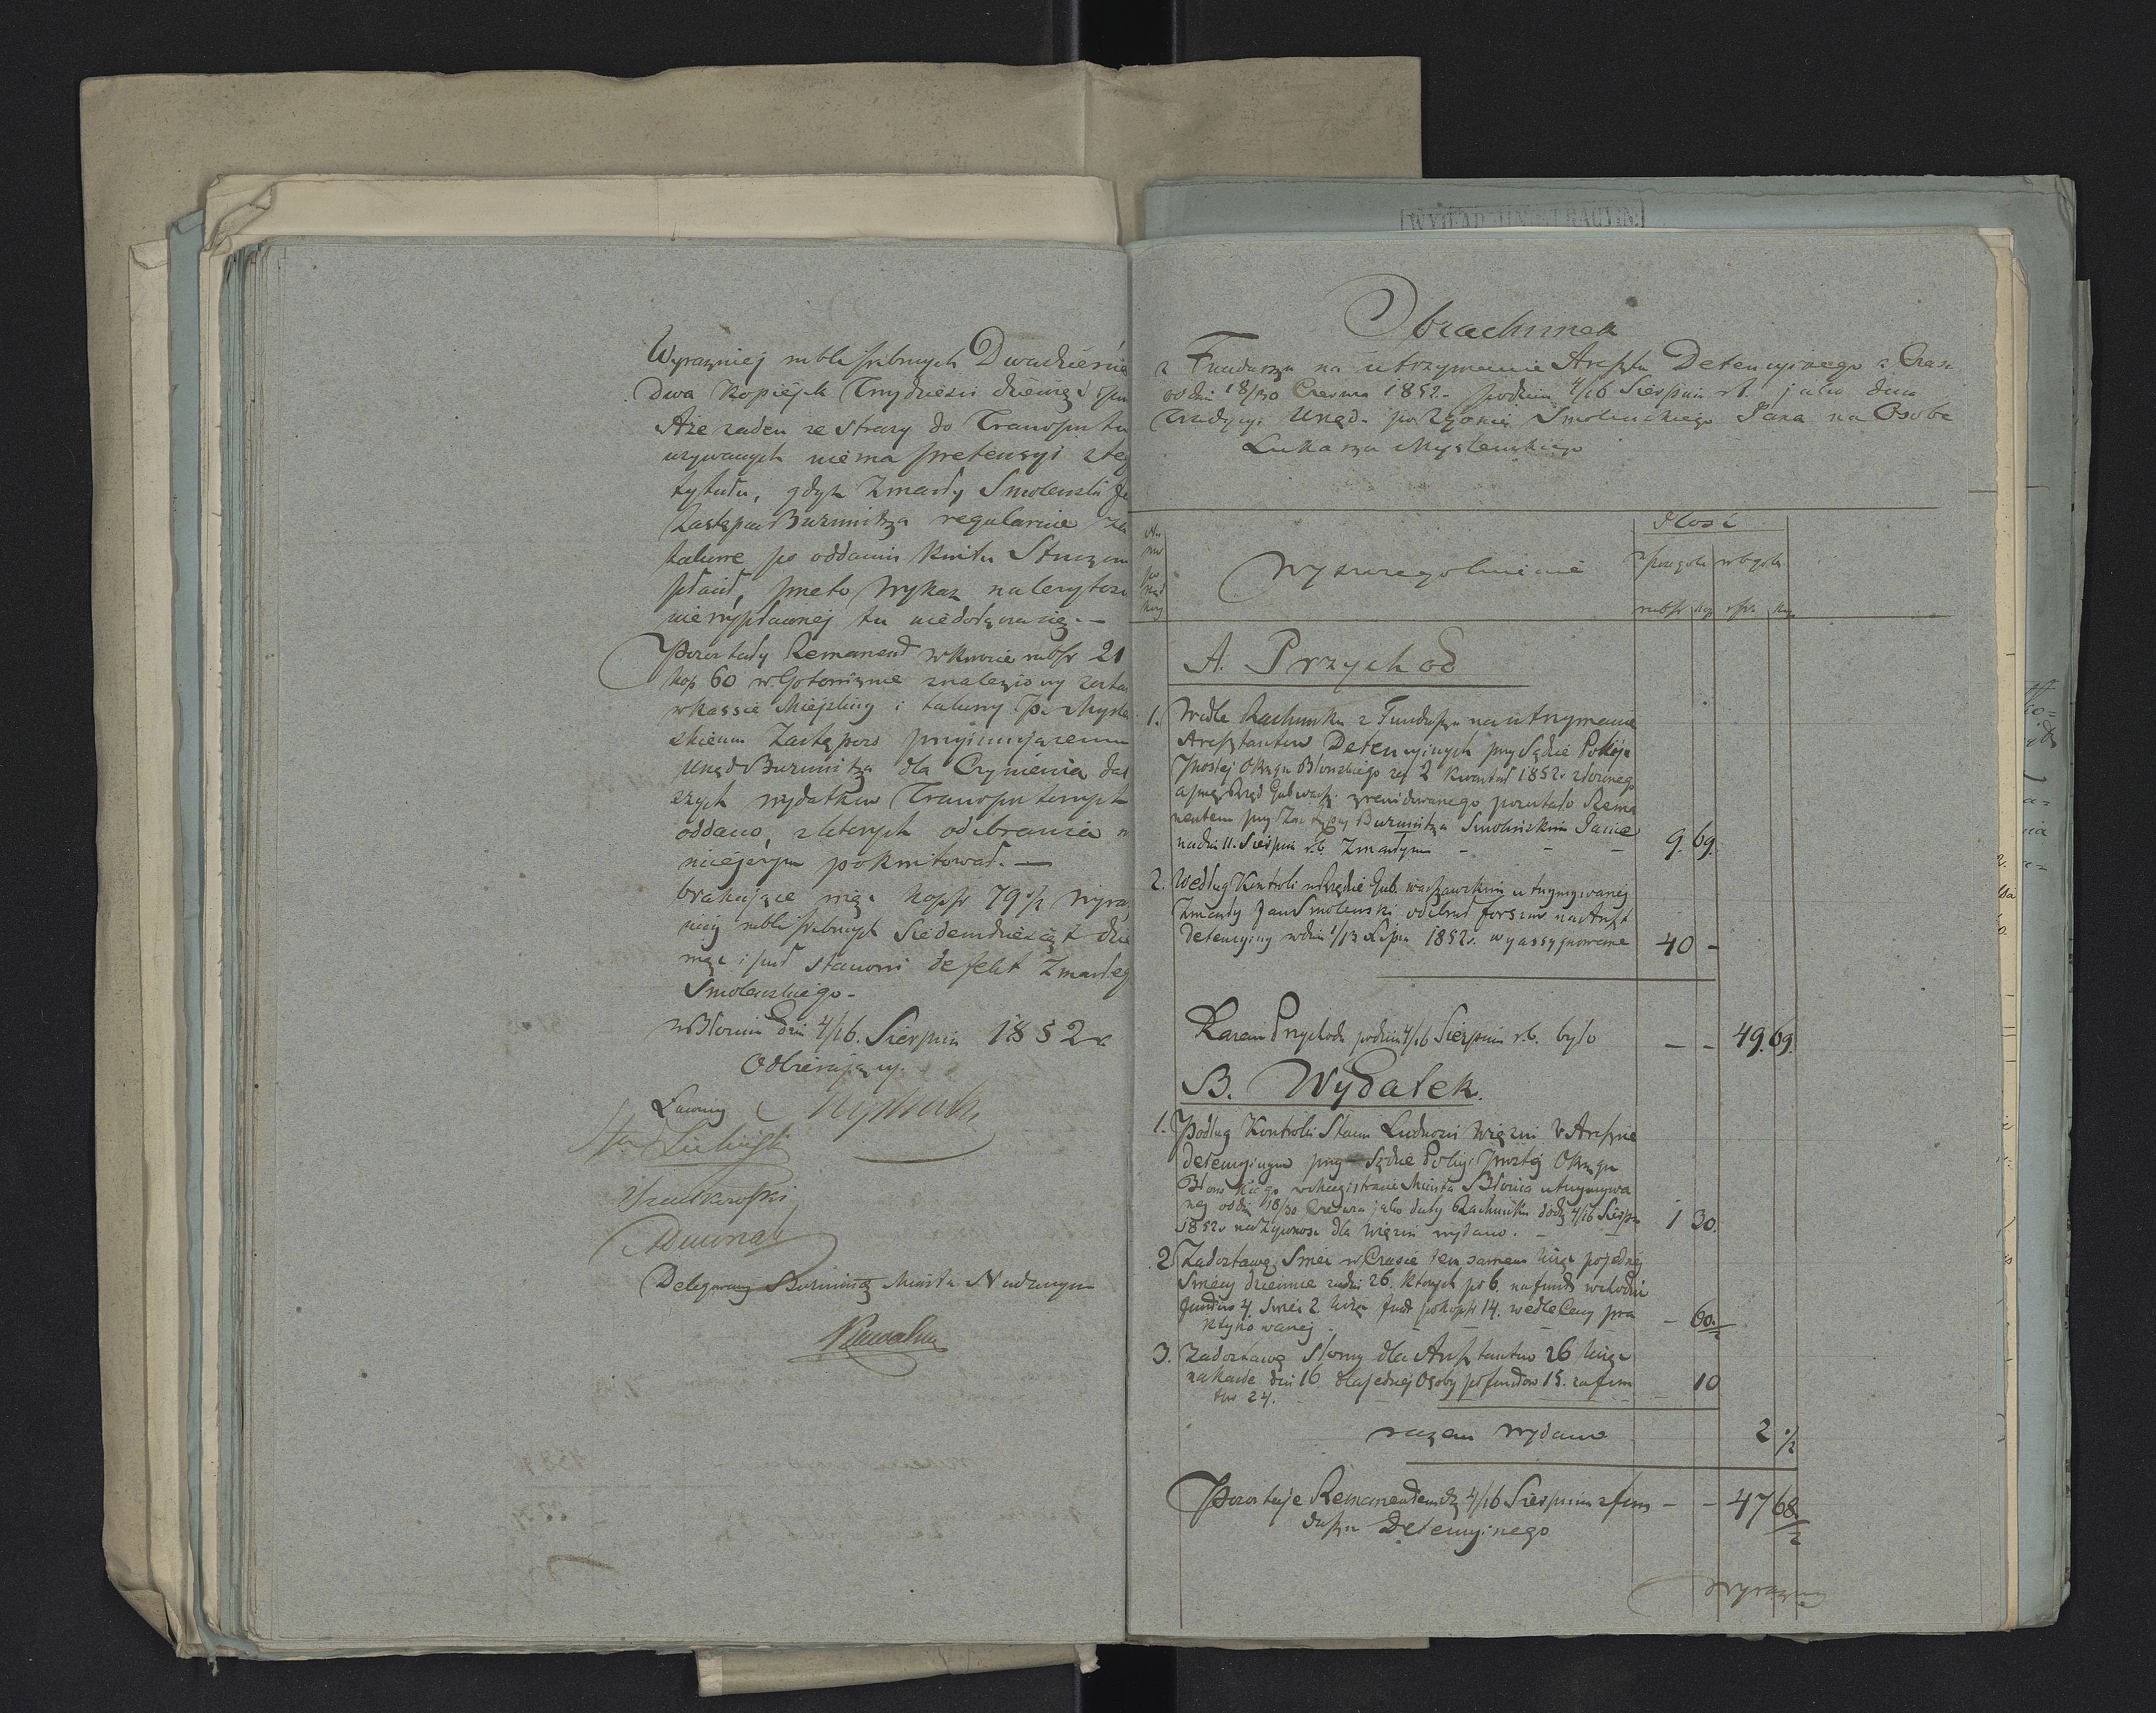 Wyrazniej rubli srebrnych Dwadzieścia
Dwa Kopiejek Trzydzieści dziewięć i puł
Aże zaden ze strazy do Transportu
uzywanych niema pretensyi z tego
tytułu, gdyz Zmarły Smolenski
Zastępca Burmistrza regularnie
takowe po oddaniu Kwitu Strazom
płacił, przeto Wykaz nalezytosci
niewypłaconej tu niedołącza się. —
Pozostały Remanent w kwocie rubsr 21
kop 60 w Gotowiznie znaleziony został
w kassie Miejskiej i takowy Pu Mysle
skiemu Zastępcy przyjmującemu
Urząd Burmistrza dla Czynienia dal
szych wydatków Transportowych
oddano, z których odebrania
niniejszym pokwitował. —
brakujące więc kopsr 79 1/2 wyra
zniej rubli srebrnych Siedemdziesiąt dzie
więc i puł stanowi defekt Zmarłego
Smolenskiego.
w Błoniu dnia 4/16 Sierpnia 1852 r
Odbierający
Ławnicy
Delegowany Burmistrz Miasta Nadarzyna
WYD. ADMINISTRACYJN.
Obrachunek
z Funduszu na utrzymanie Aresztu Detencyjnego z Czasu
od dnia 18/30 Czerwca 1852 - podzień 4/16 Sierpnia r.b. jako dnia
Tradycyi Urzędu po Zgonie Smolenskiego Jana na Osobę
Łukasza Myslenskiego
Nu
mer
po
rząd
kowy
Wyszczegolnienie
Ilość
w szczegole w ogole
rubsr kop rsr. kop
A. Przychod
1. Wedle Rachunku z Funduszu na utrzymanie
Aresztantow Detencyjnych przy Sądzie Policyi
Prostej Okręgu Błonskiego za 2 Kwartał 1852 r. złozonego
a przez Rząd Gub warsz. zrewidowanego pozostało Rema
nentem przy Zastępcy Burmistrza Smolinskim Janie
na dniu 11. Sierpnia r.b. Zmarłym - - - 9. 69.
2. Według Kontroli w Rządzie Gub. warszawskim utrzymywanej
Zmarły Jan Smolenski odebrał forszus na Areszt
detencyjny w dniu 1/13 Lipca 1852 r. wyassygnowane 40 -
Razem Przychodu podzień 4/16 Sierpnia r.b. było - - 49. 69.
B. Wydatek.
1. Podług Kontroli Stanu Ludnosci Więzni w Areszcie
detencyjnym przy Sądzie Policyi Prostej Okręgu
Błonskiego w Magistracie Miasta Błonia utrzymywa
nej od dnia 18/30 Czerwca jako daty Rachunku do dnia 4/16 Sierpnia
1852 r na Zywnosc dla więzni wydano. - 1 30.
2. Za dostawę Swiec w Czasie tem samem licząc po jednej
Swiecy dziennie za dni 26. Ktorych po 6. na funt wchodzi
funtow 4. Swiec 2 licząc funt po kopsr 14. wedle Ceny pra
ktykowanej - - - - - 60 1/2
3. Za dostawę Słomy dla Aresztantow 26 licząc
na Kazde dni 16 dla jednej Osoby po funtow 15. za fun
tow 24. - 10
razem wydano 2 1/2
Pozostaje Remanentem dnia 4/16 Sierpnia z fun - - 47 68 1/2
duszu Detencyjnego
wyrazniej